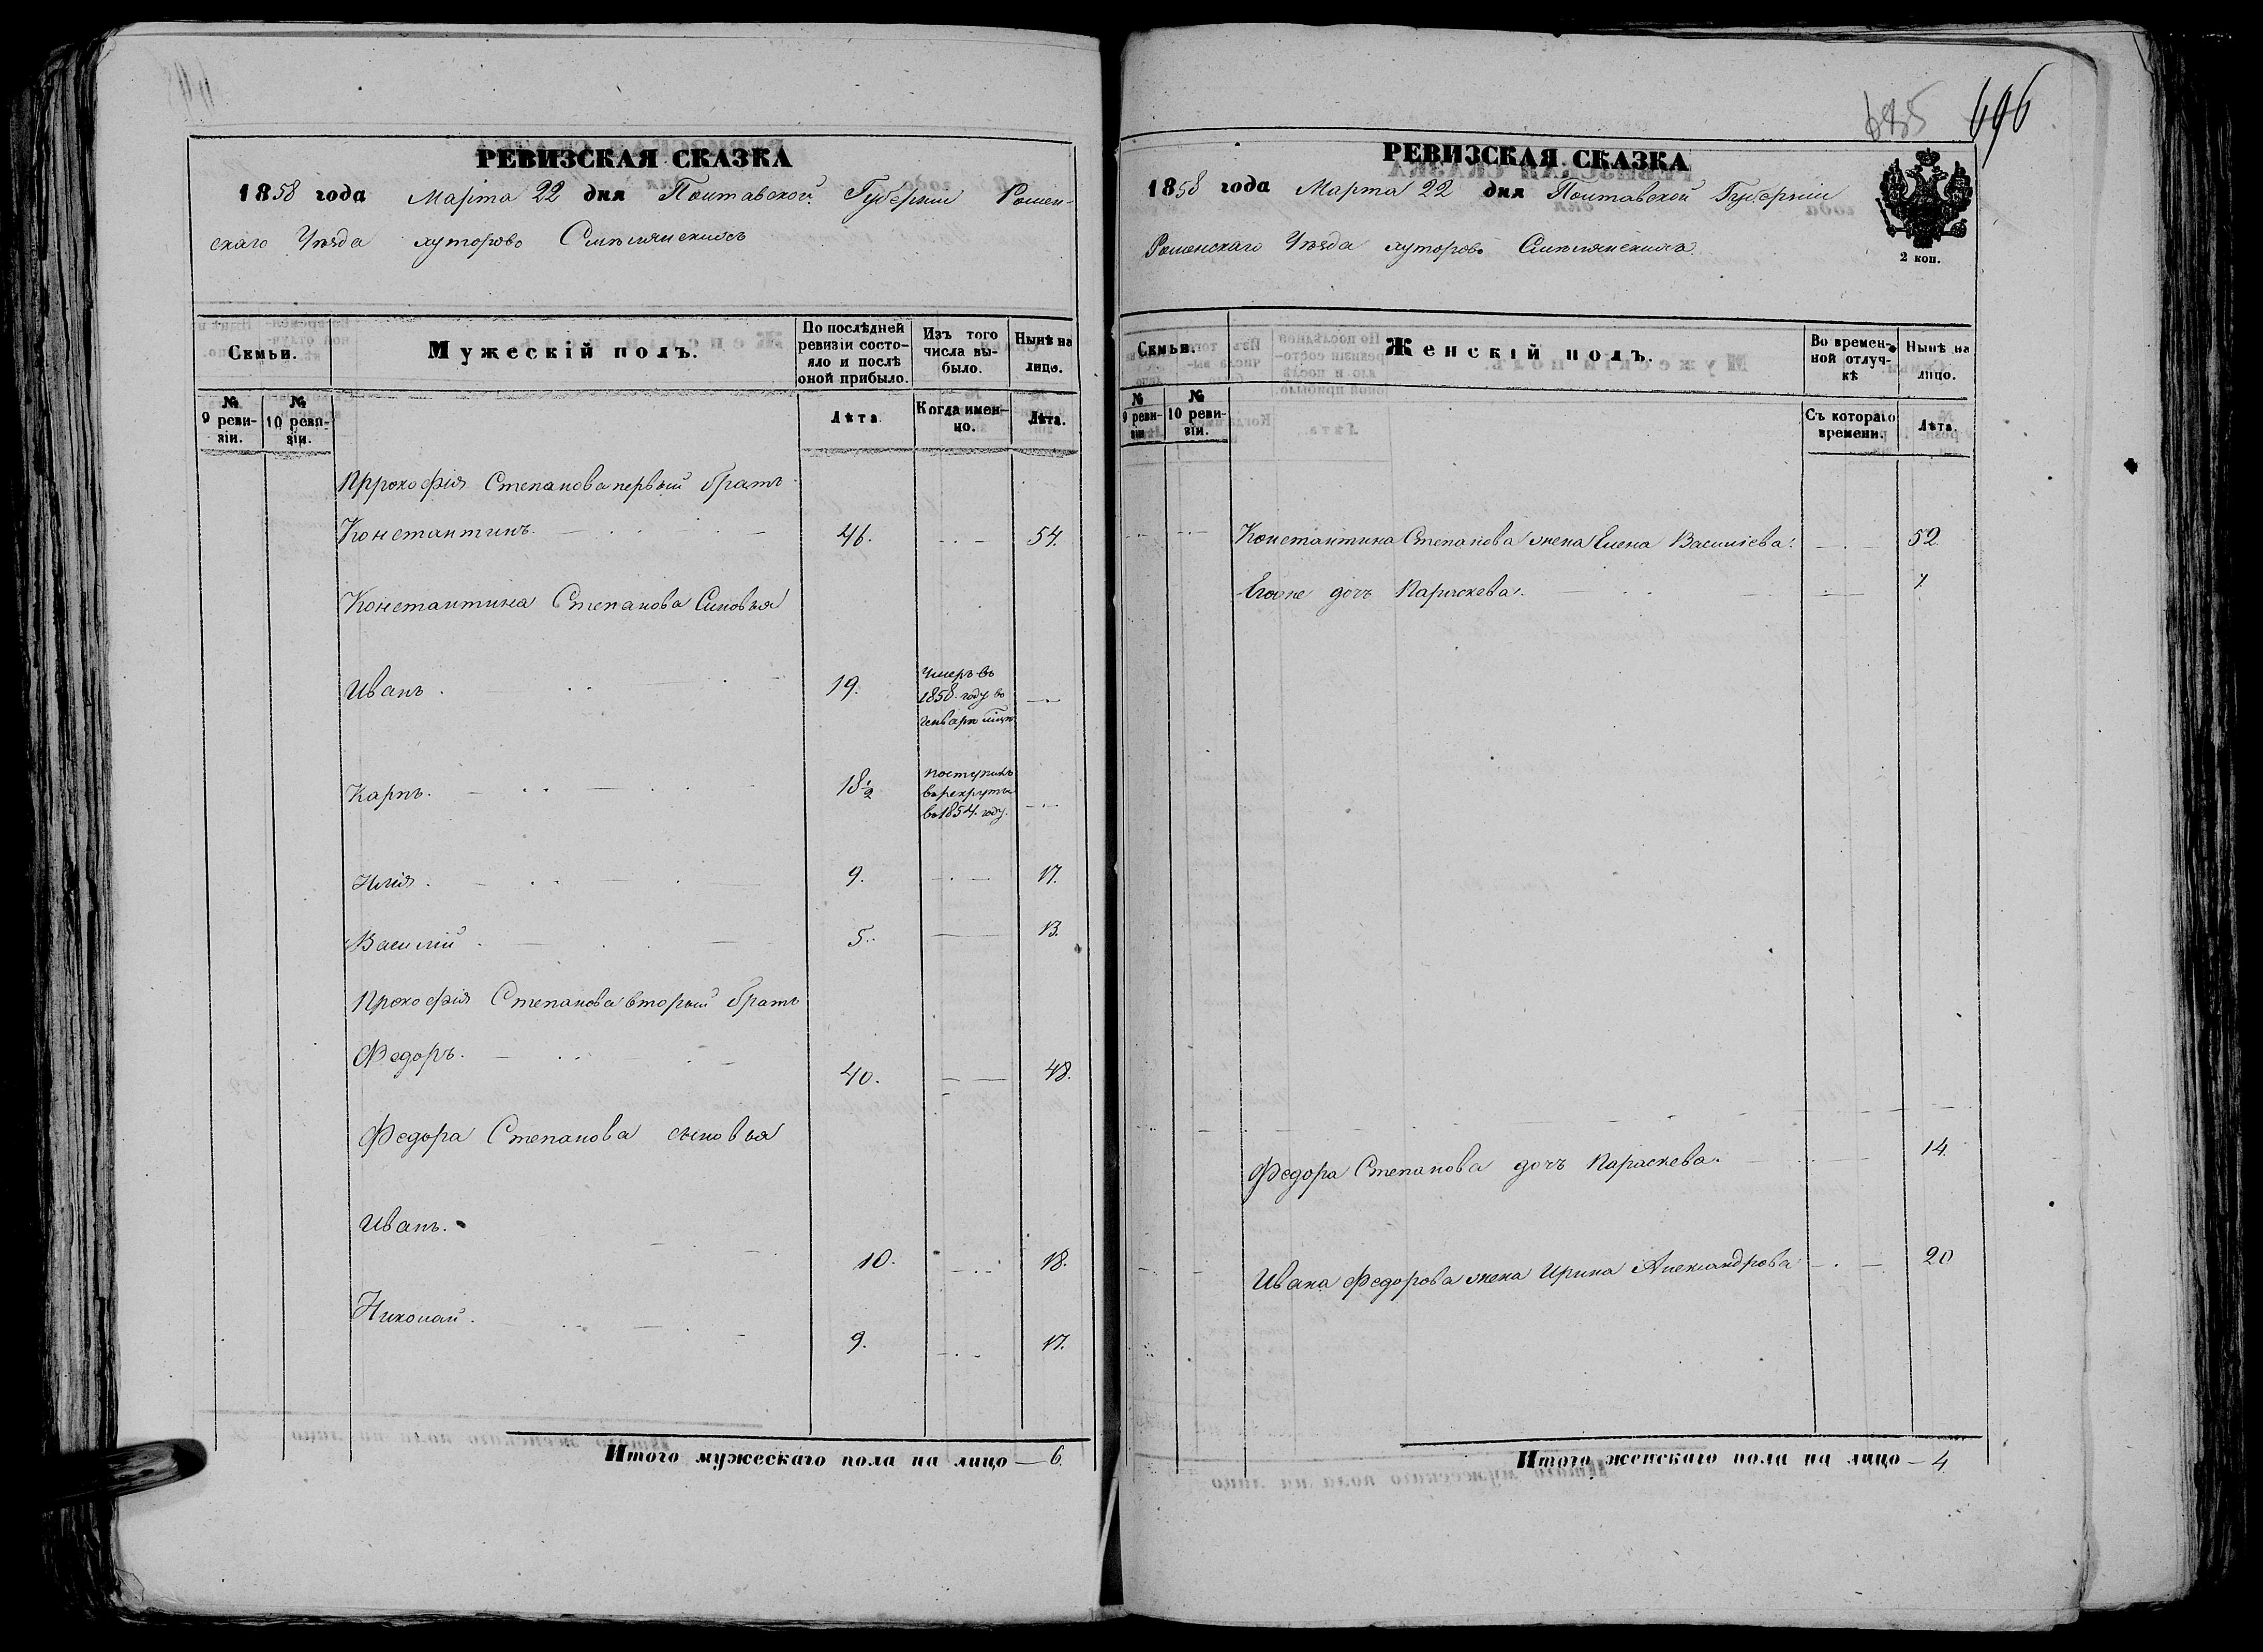 РЕВИЗСКАЯ СКАЗКА
1858 года Марта 22 дня Полтавской Губерніи Ромен-
скаго Уѣзда хуторовъ Смѣлянскихъ
Семьи.
Мужескій полъ.
По послѣдней ревизіи состо-
яло и послѣ оной прибыло.
Изъ того числа вы-
было.
Нынѣ на лицо.
№ 9 реви-
зіи.
№ 10 реви-
зіи.
Лѣта.
Когда имен-
но.
Лѣта.
Пррокофія Степанова первый братъ
Константинъ. 46. 54.
Константина Степанова Синовья
Иванъ. 19. Умеръ въ
1858. году въ
генварѣ мѣцѣ
Карпъ. 18½ поступилъ
въ рекруты
въ 1854. году.
Илія. 9. 17.
Василій. 5. 13.
Прокофія Степанова вторый братъ
Федоръ. 40. 48.
Федора Степанова сыновья
Иванъ. 10. 18.
Николай. 9. 17.
Итого мужескаго пола на лицо — 6.
685 696
РЕВИЗСКАЯ СКАЗКА
1858 года Марта 22 дня Полтавской Губерніи
Роменскаго Уѣзда хуторовъ Смѣлянскихъ
2 коп.
Семьи.
Женскій полъ.
Во времен-
ной отлуч-
кѣ
Нынѣ на лицо.
№ 9 реви-
зіи
№ 10 реви-
зіи.
Съ котораго времени.
Лѣта.
Константина Степанова жена Елена Василіева. 52.
Егоже дочь Параскева. 7.
Федора Степанова дочь Параскева. 14.
Ивана Федорова жена Ирина Александрова 20
Итого женскаго пола на лицо — 4